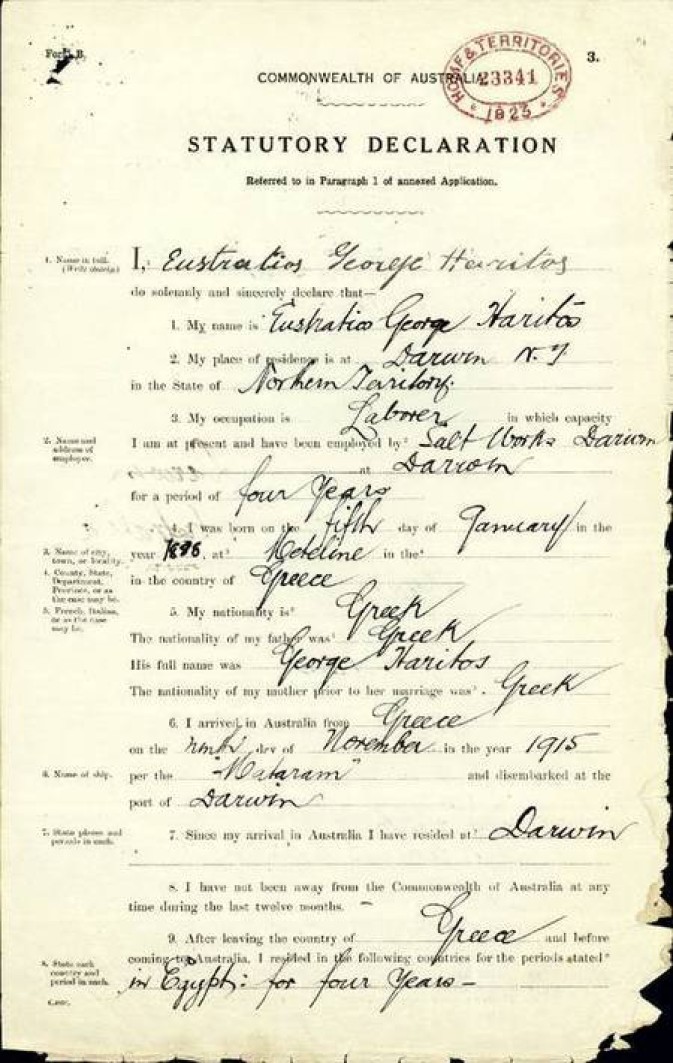 Form B.
3.
HOME & TERRITORIES
23341
1823
COMMONWEALTH OF AUSTRALIA
STATUTORY DECLARATION
Referred to in Paragraph 1 of annexed Application.
1. Name in full. (Write clearly.)
I, Eustratios George Haritos
do solemnly and sincerely declare that—
1. My name is Eustratios George Haritos
2. My place of residence is at Darwin N.T
in the State of Northern Territory.
3. My occupation is Laborer in which capacity
2. Name and address of employer.
I am at present and have been employed by² Salt Works Darwin
at Darwin
for a period of four Years
4. I was born on the fifth day of January in the
3. Name of city, town, or locality.
year 1896, at³ Meteline in the⁴
4. County, State, Department, Province, or as the case may be.
in the country of Greece
5. French, Italian, or as the case may be.
5. My nationality is⁵ Greek
The nationality of my father was⁵ Greek
His full name was George Haritos
The nationality of my mother prior to her marriage was⁵. Greek
6. I arrived in Australia from Greece
on the ninth day of November in the year 1915
6. Name of ship.
per the⁶ "Mataram" and disembarked at the
port of Darwin
7. State places and periods in each.
7. Since my arrival in Australia I have resided at⁷ Darwin
8. I have not been away from the Commonwealth of Australia at any
time during the last twelve months. –
9. After leaving the country of Greece and before
8. State each country and period in each.
coming to Australia, I resided in the following countries for the periods stated⁸
in Egypt: for four Years –